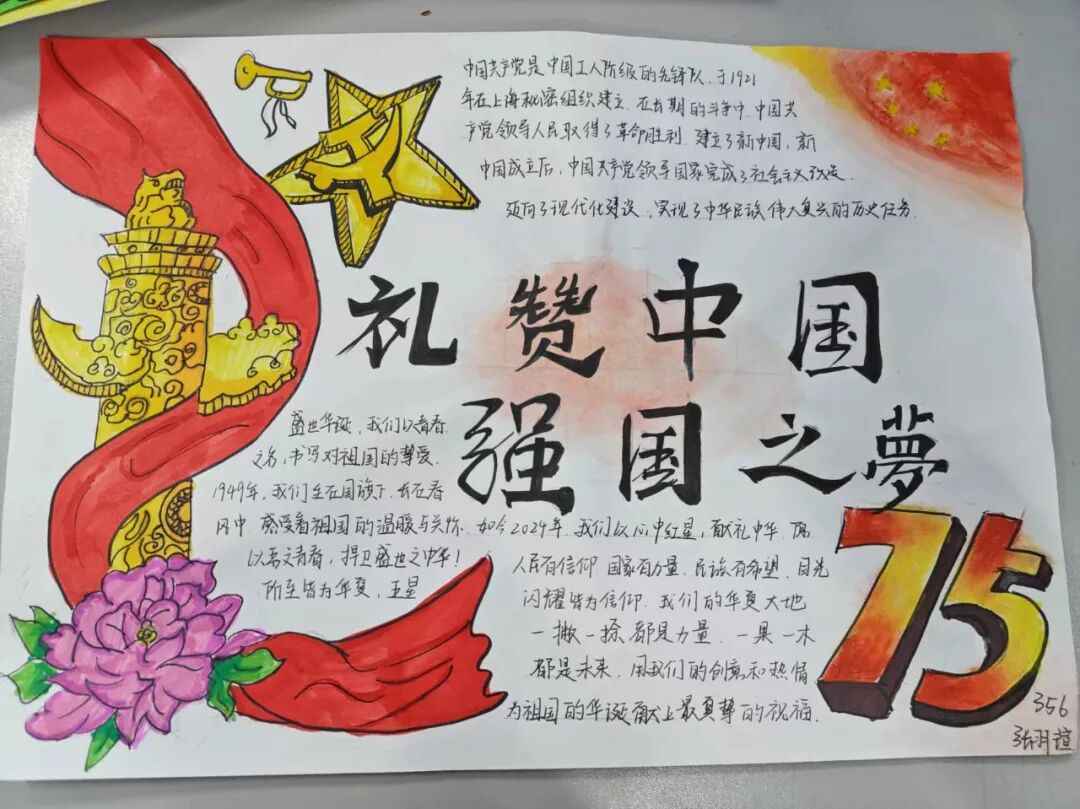 中国共产党是中国工人阶级的先锋队,于1921
年在上海秘密组织建立.在长期的斗争中.中国共
产党领导人民取得了革命胜利.建立了新中国,新
中国成立后,中国共产党领导国家完成了社会主义改造.
迈向了现代化建设.实现了中华民族伟大复兴的历史任务.
礼赞中国
强国之夢
盛世华诞,我们以青春
之名,书写对祖国的挚爱.
1949年,我们生在国旗下.长在春
风中.感受着祖国的温暖与关怀.如今2024年.我们以心中红星,献礼中华.
以青春,捍卫盛世之中华!
所至皆为华夏,五星
人民有信仰 国家有力量.民族有希望.目光
闪耀皆为信仰.我们的华夏大地
一撇一捺都是力量.一果一木
都是未来,用我们的创意和热情
为祖国的华诞献上最真挚的祝福.
75
356